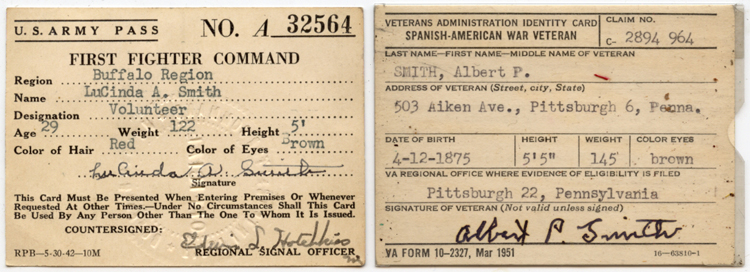 U.S. ARMY PASS NO. A 32564
FIRST FIGHTER COMMAND
Region Buffalo Region
Name LuCinda A. Smith
Designation Volunteer
Age 29 Weight 122 Height 5'
Color of Hair Red Color of Eyes Brown
LuCinda A. Smith
Signature
This Card Must Be Presented When Entering Premises Or Whenever
Requested At Other Times.—Under No Circumstances Shall This Card
Be Used By Any Person Other Than The One To Whom It Is Issued.
COUNTERSIGNED:
Edwin L Hotchkiss
RPB—5-30-42—10M REGIONAL SIGNAL OFFICER
VETERANS ADMINISTRATION IDENTITY CARD
SPANISH-AMERICAN WAR VETERAN
CLAIM NO.
C- 2894 964
LAST NAME—FIRST NAME—MIDDLE NAME OF VETERAN
SMITH, Albert P.
ADDRESS OF VETERAN (Street, city, State)
503 Aiken Ave., Pittsburgh 6, Penna.
DATE OF BIRTH HEIGHT WEIGHT COLOR EYES
4-12-1875 5'5" 145 brown
VA REGIONAL OFFICE WHERE EVIDENCE OF ELIGIBILITY IS FILED
Pittsburgh 22, Pennsylvania
SIGNATURE OF VETERAN (Not valid unless signed)
Albert P. Smith
VA FORM 10-2327, Mar 1951 16—63810-1